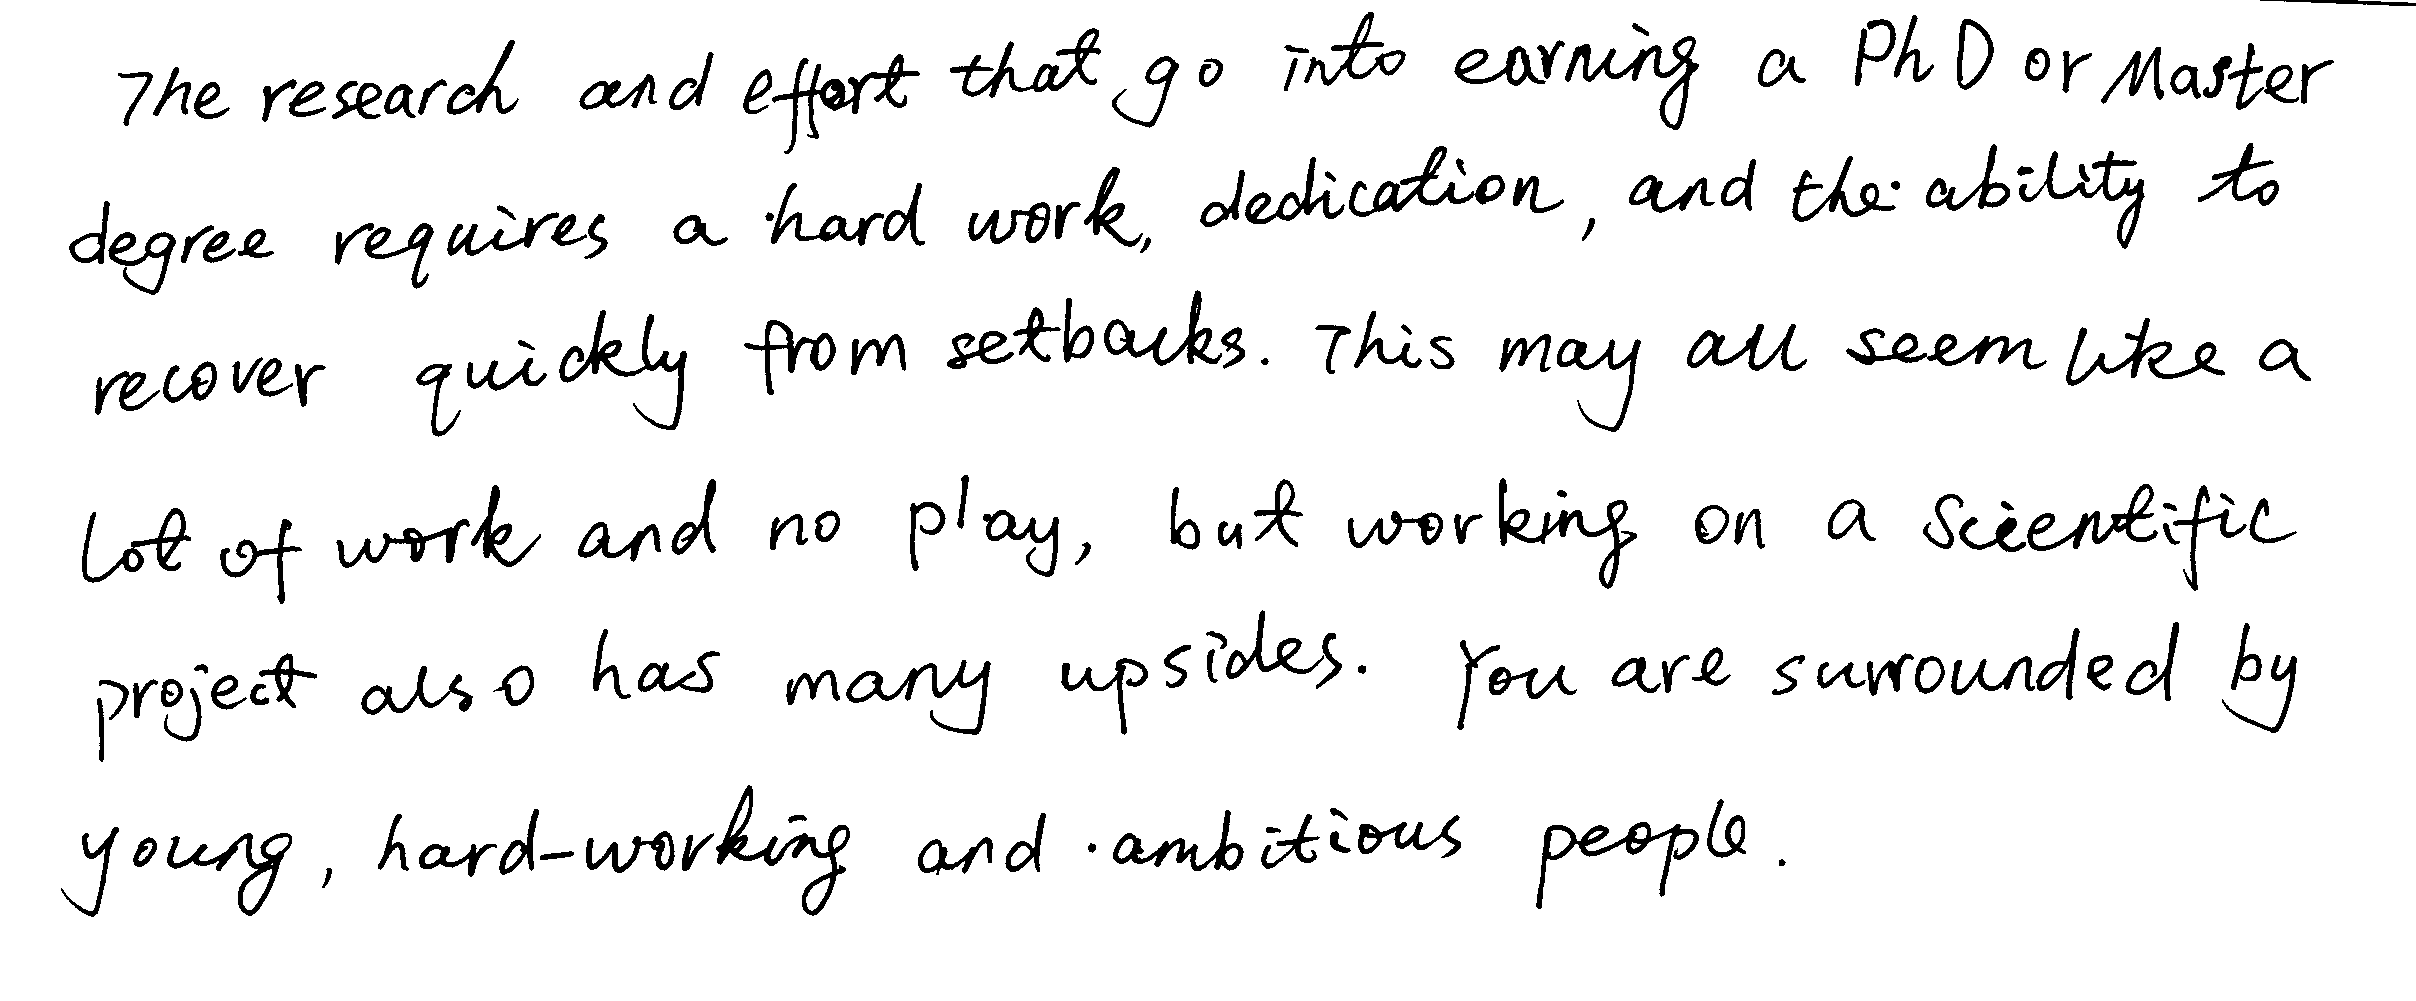 The research and effort that go into earning a PhD or Master
degree requires a hard work, dedication, and the ability to
recover quickly from setbacks. This may all seem like a
lot of work and no play, but working on a scientific
project also has many upsides. You are surrounded by
young, hard-working and ambitious people.